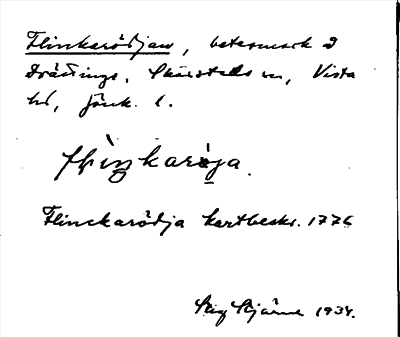 Flinkarödjan, betesmark å
Drättinge, Skärstads sn, Vista
hd, Jönk. l.
flìŋkarö̀ja.
Flinckarödja kartbeskr. 1776
Stig Stjärne 1934.